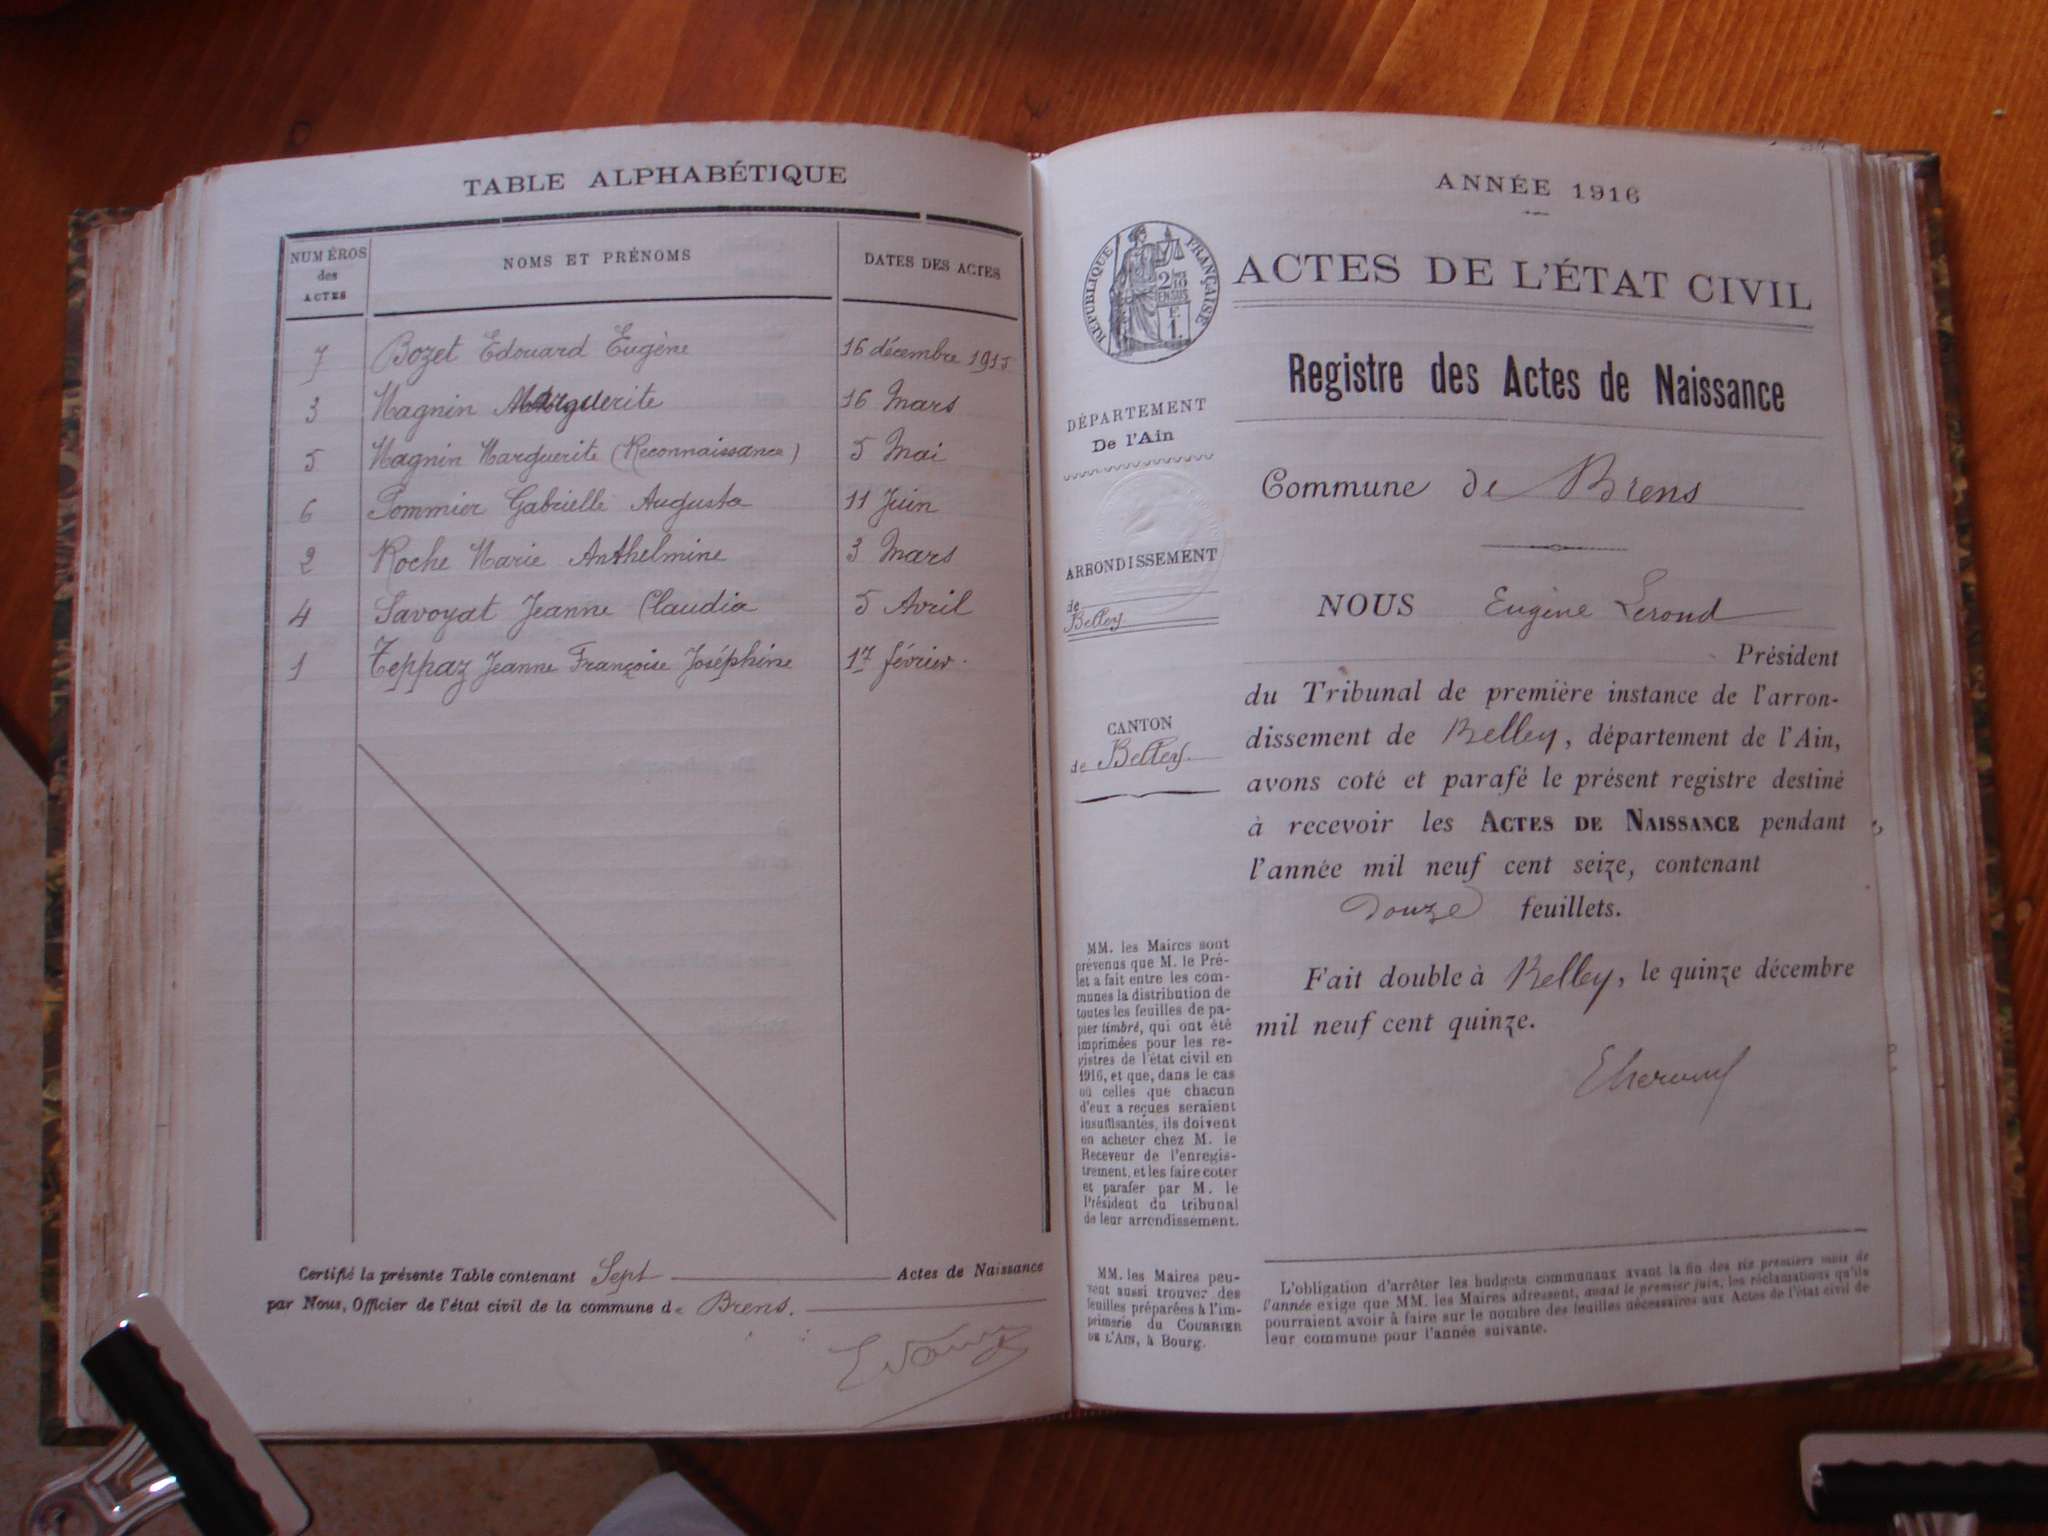 TABLE ALPHABÉTIQUE
NUMÉROS des ACTES
NOMS ET PRÉNOMS
DATES DES ACTES
7 Bozet Edouard Eugène 16 décembre 1915
3 Magnin Marguerite 16 Mars
5 Magnin Marguerite (Reconnaissance) 5 Mai
6 Pommier Gabrielle Augusta 11 Juin
2 Roche Marie Anthelmine 3 Mars
4 Savoyat Jeanne Claudia 5 Avril
1 Teppaz Jeanne Françoise Joséphine 17 février.
Certifié la présente Table contenant Sept Actes de Naissance
par Nous, Officier de l'état civil de la commune de Brens.
ANNÉE 1916
RÉPUBLIQUE FRANÇAISE
2/10
EN SUS
1.
ACTES DE L'ÉTAT CIVIL
Registre des Actes de Naissance
DÉPARTEMENT
De l'Ain
ARRONDISSEMENT
de
Belley
CANTON
de Belley
Commune de Brens
NOUS Eugène Lerond
Président
du Tribunal de première instance de l'arron-
dissement de Belley, département de l'Ain,
avons coté et parafé le présent registre destiné
à recevoir les ACTES DE NAISSANCE pendant
l'année mil neuf cent seize, contenant
douze feuillets.
Fait double à Belley, le quinze décembre
mil neuf cent quinze.
MM. les Maires sont
prévenus que M. le Pré-
fet a fait entre les com-
munes la distribution de
toutes les feuilles de pa-
pier timbré, qui ont été
imprimées pour les re-
gistres de l'état civil en
1916, et que, dans le cas
où celles que chacun
d'eux a reçues seraient
insuffisantes, ils doivent
en acheter chez M. le
Receveur de l'enregis-
trement, et les faire coter
et parafer par M. le
Président du tribunal
de leur arrondissement.
MM. les Maires peu-
vent aussi trouver des
feuilles préparées à l'im-
primerie du COURRIER
DE L'AIN, à Bourg.
L'obligation d'arrêter les budgets communaux avant la fin des six premiers mois de
l'année exige que MM. les Maires adressent, avant le premier juin, les réclamations qu'ils
pourraient avoir à faire sur le nombre des feuilles nécessaires aux Actes de l'état civil de
leur commune pour l'année suivante.